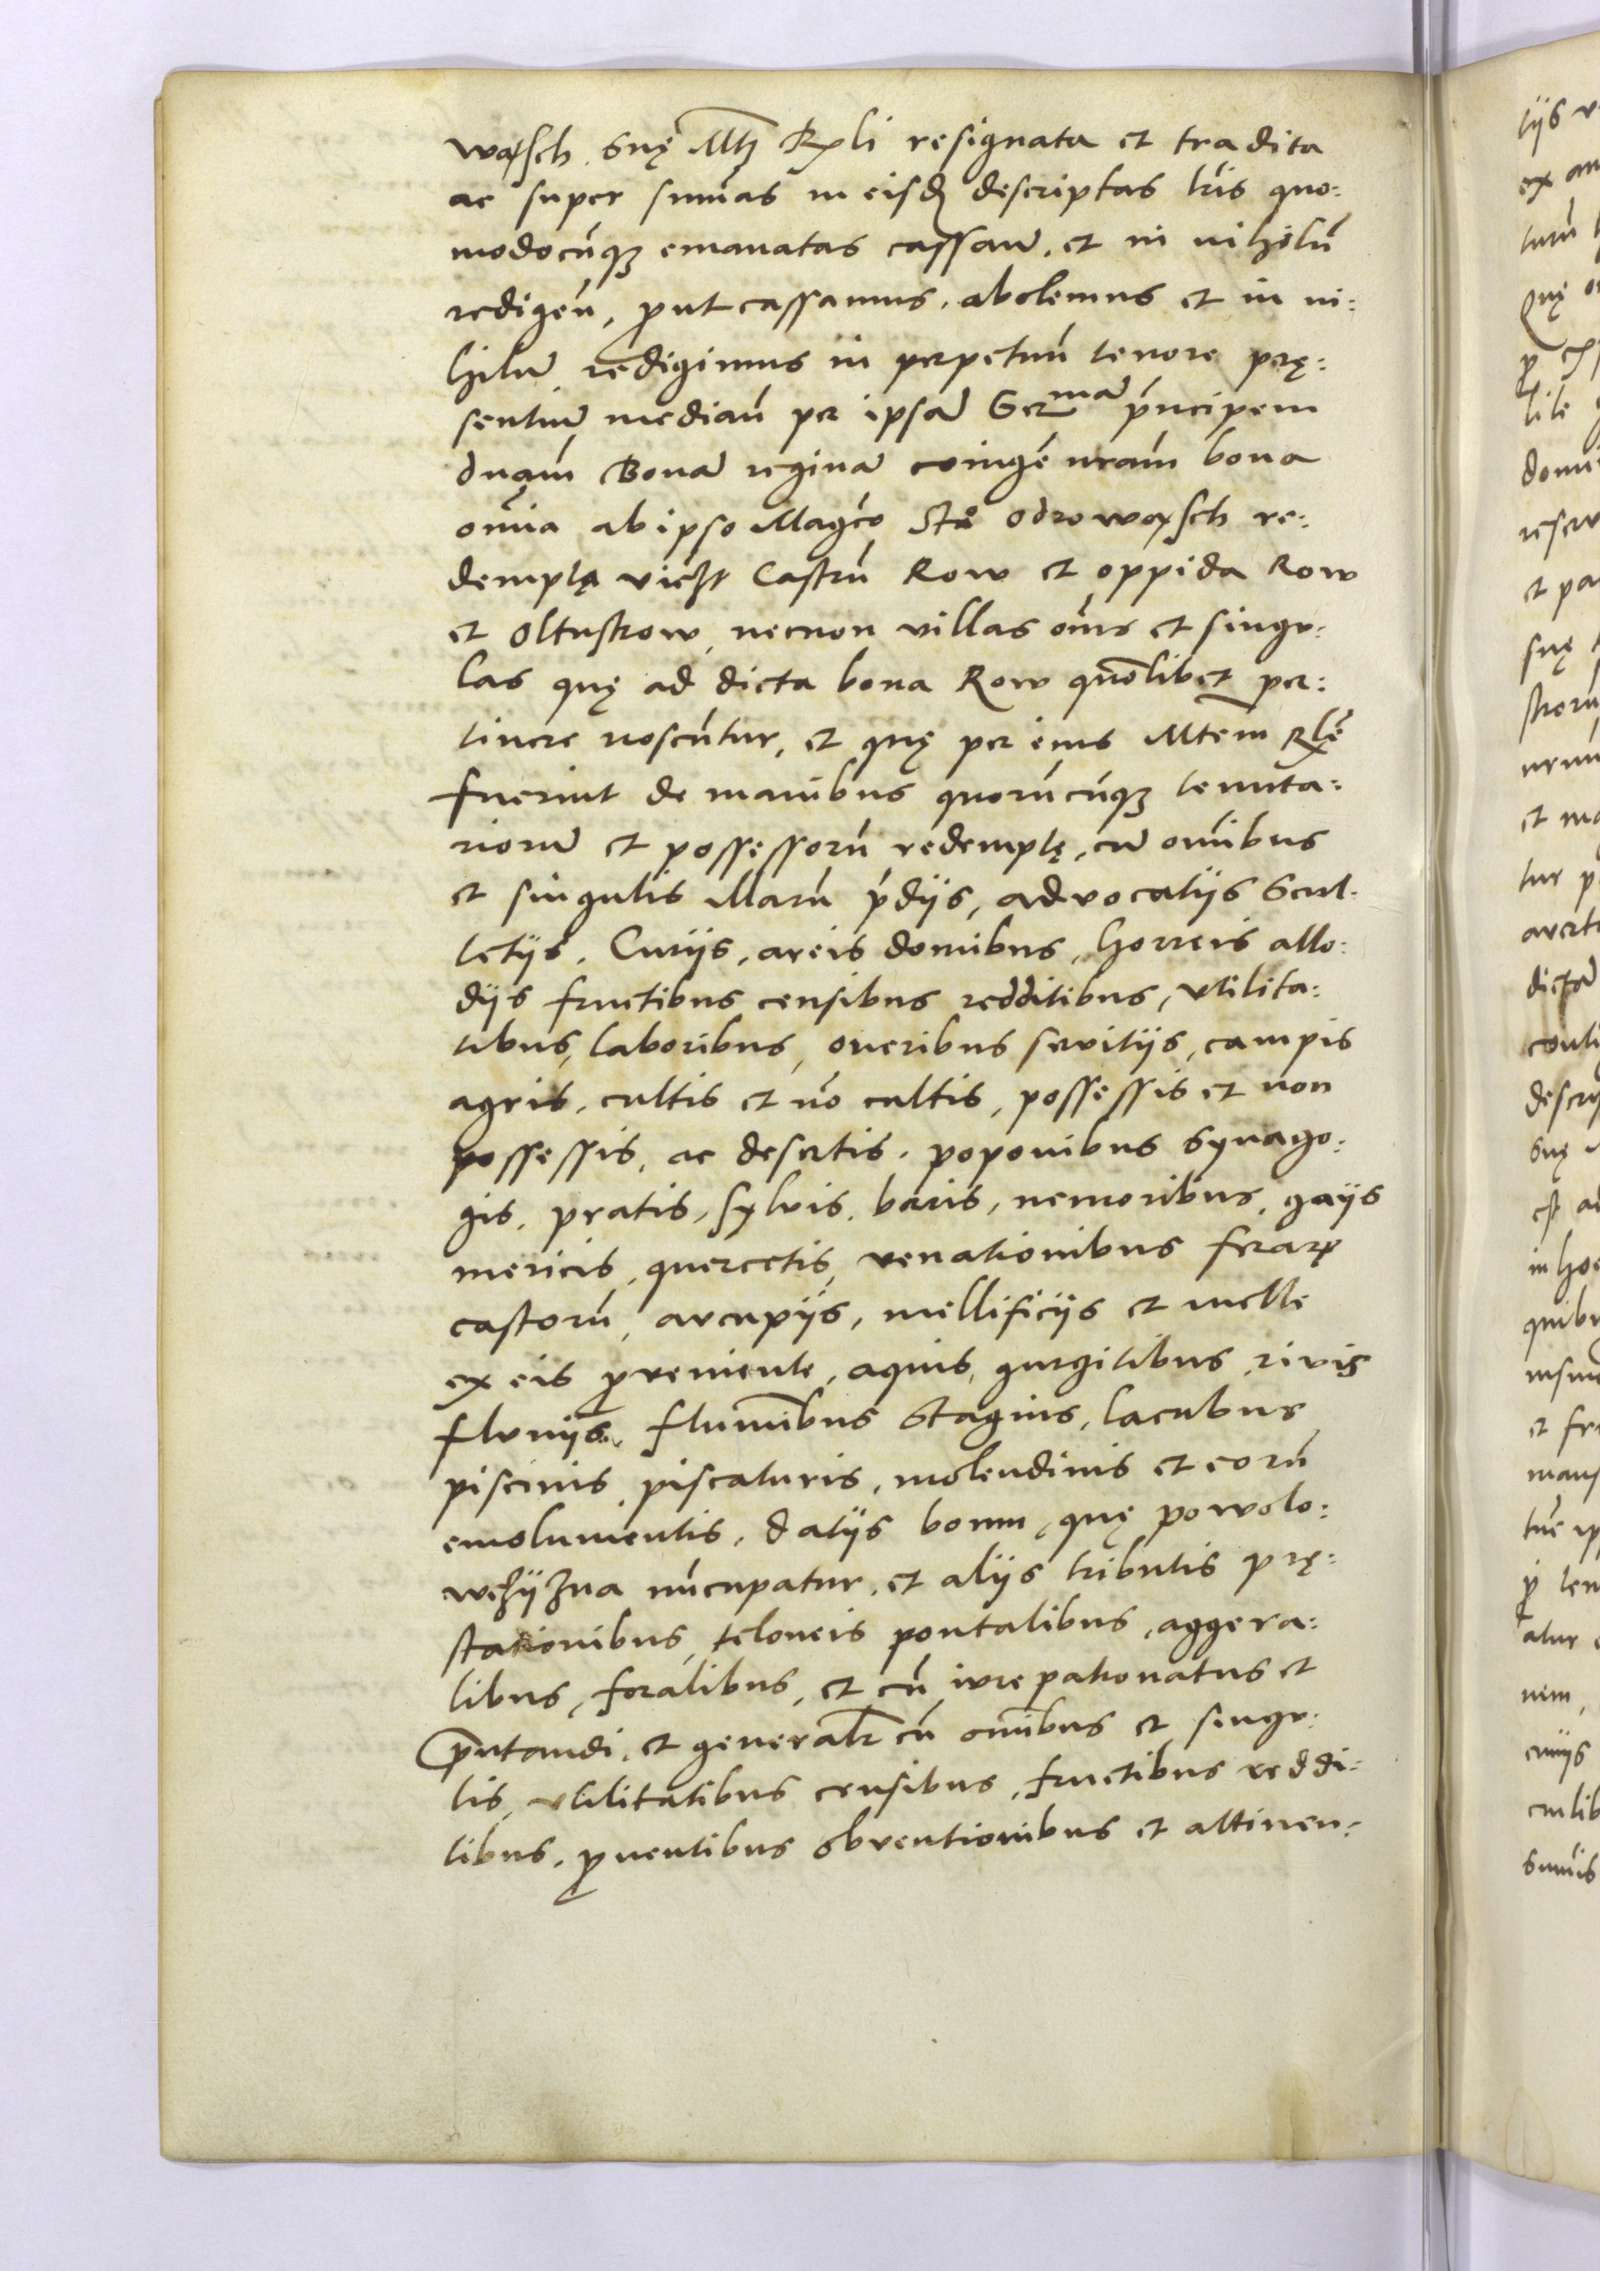 wąsch, Suę Mti Rgli resignata et tradita
ac super sum̄as in eisdē descriptas lr̄is quo:
modocūqȝ emanatas cassan̄, et in nihilū
redigen̄, prout cassamus, abolemus et in ni:
hilū redigimus in perpetuū tenore prę:
sentiū, median̄ per ipsā Serma̅ pn̄cipem
dnam̄ Bonā reginā coniugē nram̄ bona
om̄ia ab ipso Magco Sta Odrowąsch re:
dempta videlꝫ Castrū Row et oppida Row
et Oltustrow, necnon villas om̄es et singu:
las quę ad dicta bona Row quōlibet per:
tinere noscūtur, et quę per eius Mtem Rlē
fuerint de manibus quorūcūqȝ tenuta:
riorū et possessorū redemptę, cū om̄ibus
et singulis illarū p̄dijs, advocatijs Scul:
tetijs, Curijs, areis domibus, horreis allo:
dijs fructibus censibus redditibus, vtilita:
tibus, laboribus, oneribus servitijs, campis
agris, cultis et nō cultis, possessis et non
possessis, ac desertis, poponibus synago:
gis, pratis, sylvis, boris, nemoribus, gaijs
mericis, quercetis, venationibus ferarꝝ
castorū, aucupijs, mellificijs et melle
ex eis proveniente, aquis, gurgitibus, rivis
fluvijs, flumībus Stagnis, lacubus
piscinis, piscaturis, molendinis et eorū
emolumentis, datijs boum, quę powolo:
wczÿzna nūcupatur, et alijs tributis prę:
stationibus, teloneis pontalibus, aggera:
libus, foralibus, et cū iure patronatus et
pn̄tandi, et generalr̄ cū om̄ibus et singu:
lis, vtilitatibus censibus, fructibus reddi:
tibus, proventibus obventionibus et attinen: